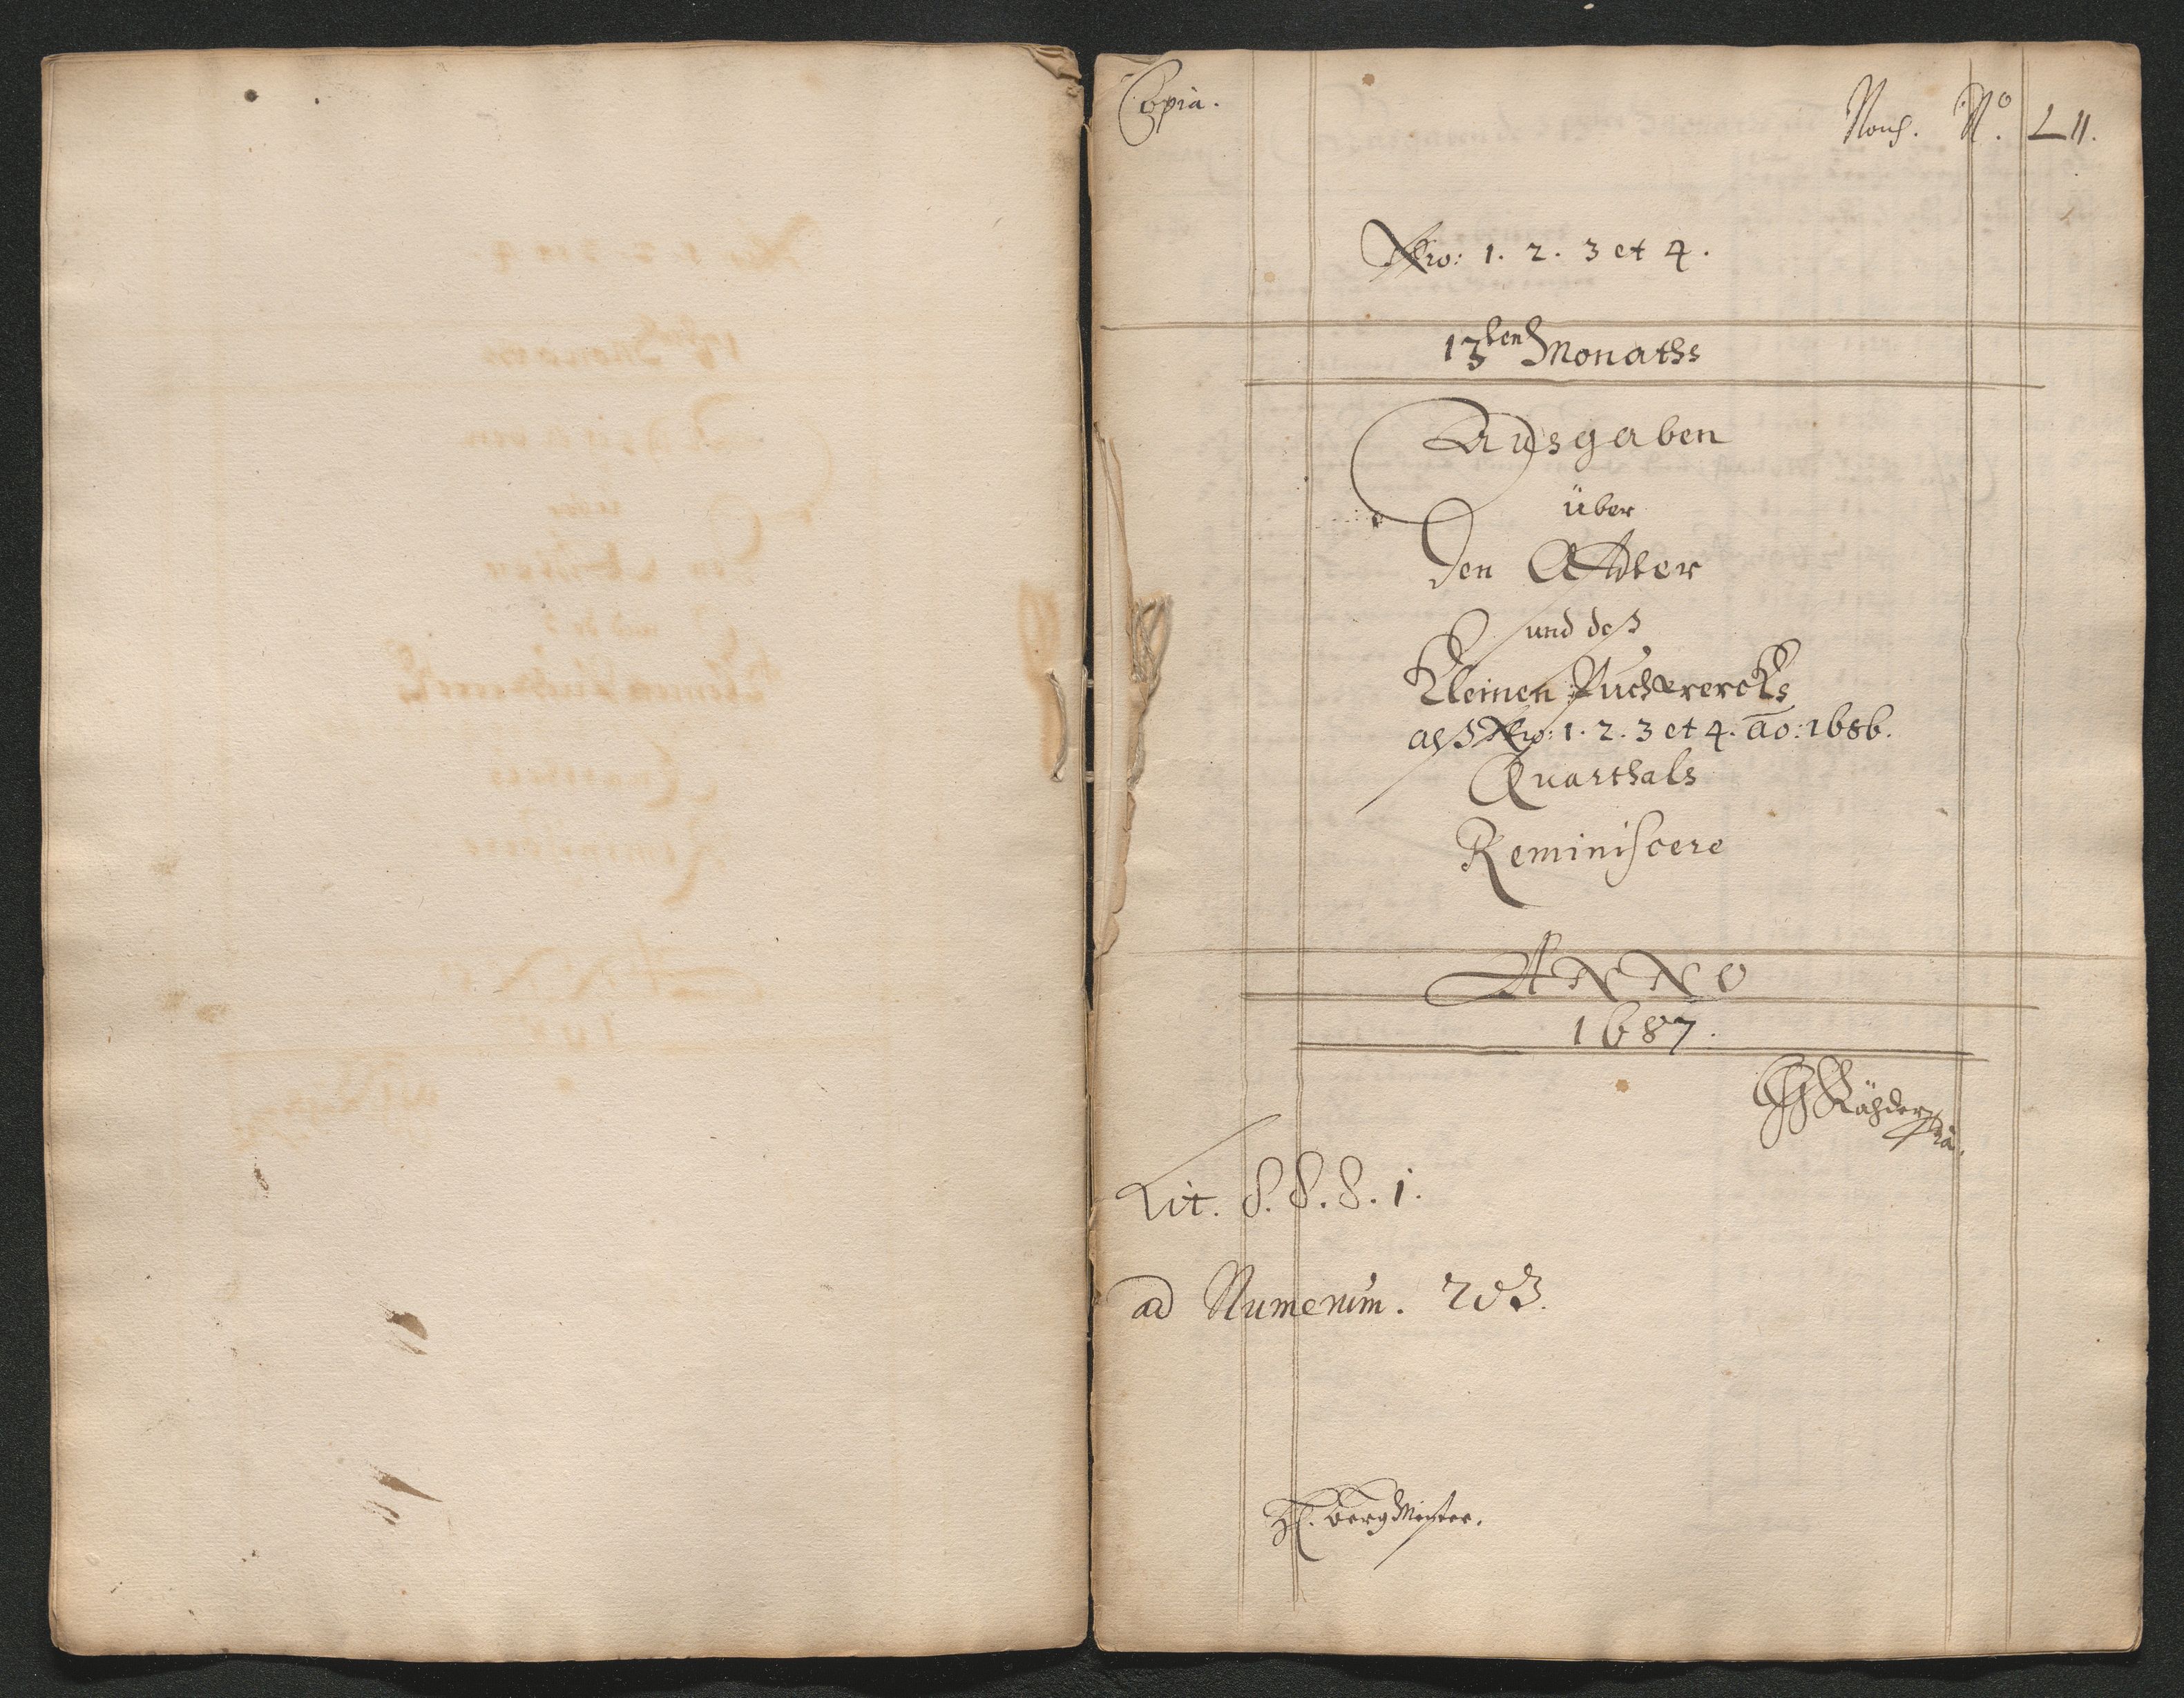 Copia.
Nous. No. LII.
Nro: 1. 2. 3 et 4.
13ten Monaths
Ausgaben
über
den Adler
und deß
Kleinen Puchwercks
alß Nro: 1. 2. 3 et 4. ao: 1686.
Quarthals
Reminiscere
ANNO
1687.
Lit. S. S. S. 1.
ad Numerum. 203.
H. bergMeister.